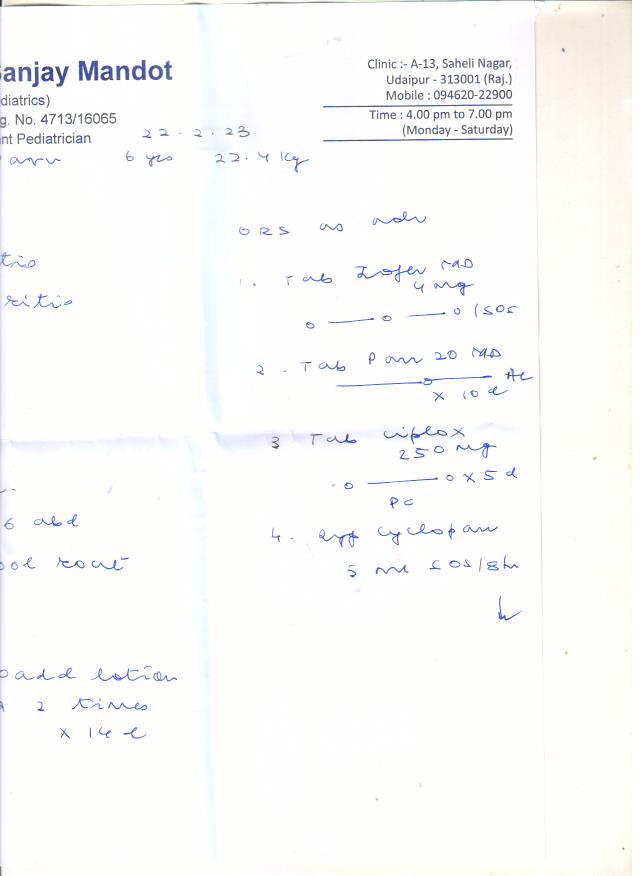 anjay Mandot
diatrics)
g. No. 4713/16065
nt Pediatrician
Clinic :- A-13, Saheli Nagar,
Udaipur - 313001 (Raj.)
Mobile : 094620-22900
Time : 4.00 pm to 7.00 pm
(Monday - Saturday)
22.2.23
6 yrs 22.4 Kg
ORS as adv
tis
ritis
1. Tab Zofer MD
4 mg
0 — 0 — 0 / SOS
2. Tab Pan 20 MD
AC
x 10 d
3 Tab ciplox
250 mg
0 — 0 x 5 d
PC
6 abd
ool rout
4. Syp Cyclopam
5 ml SOS/8h
lotion
2 times
x 14 d